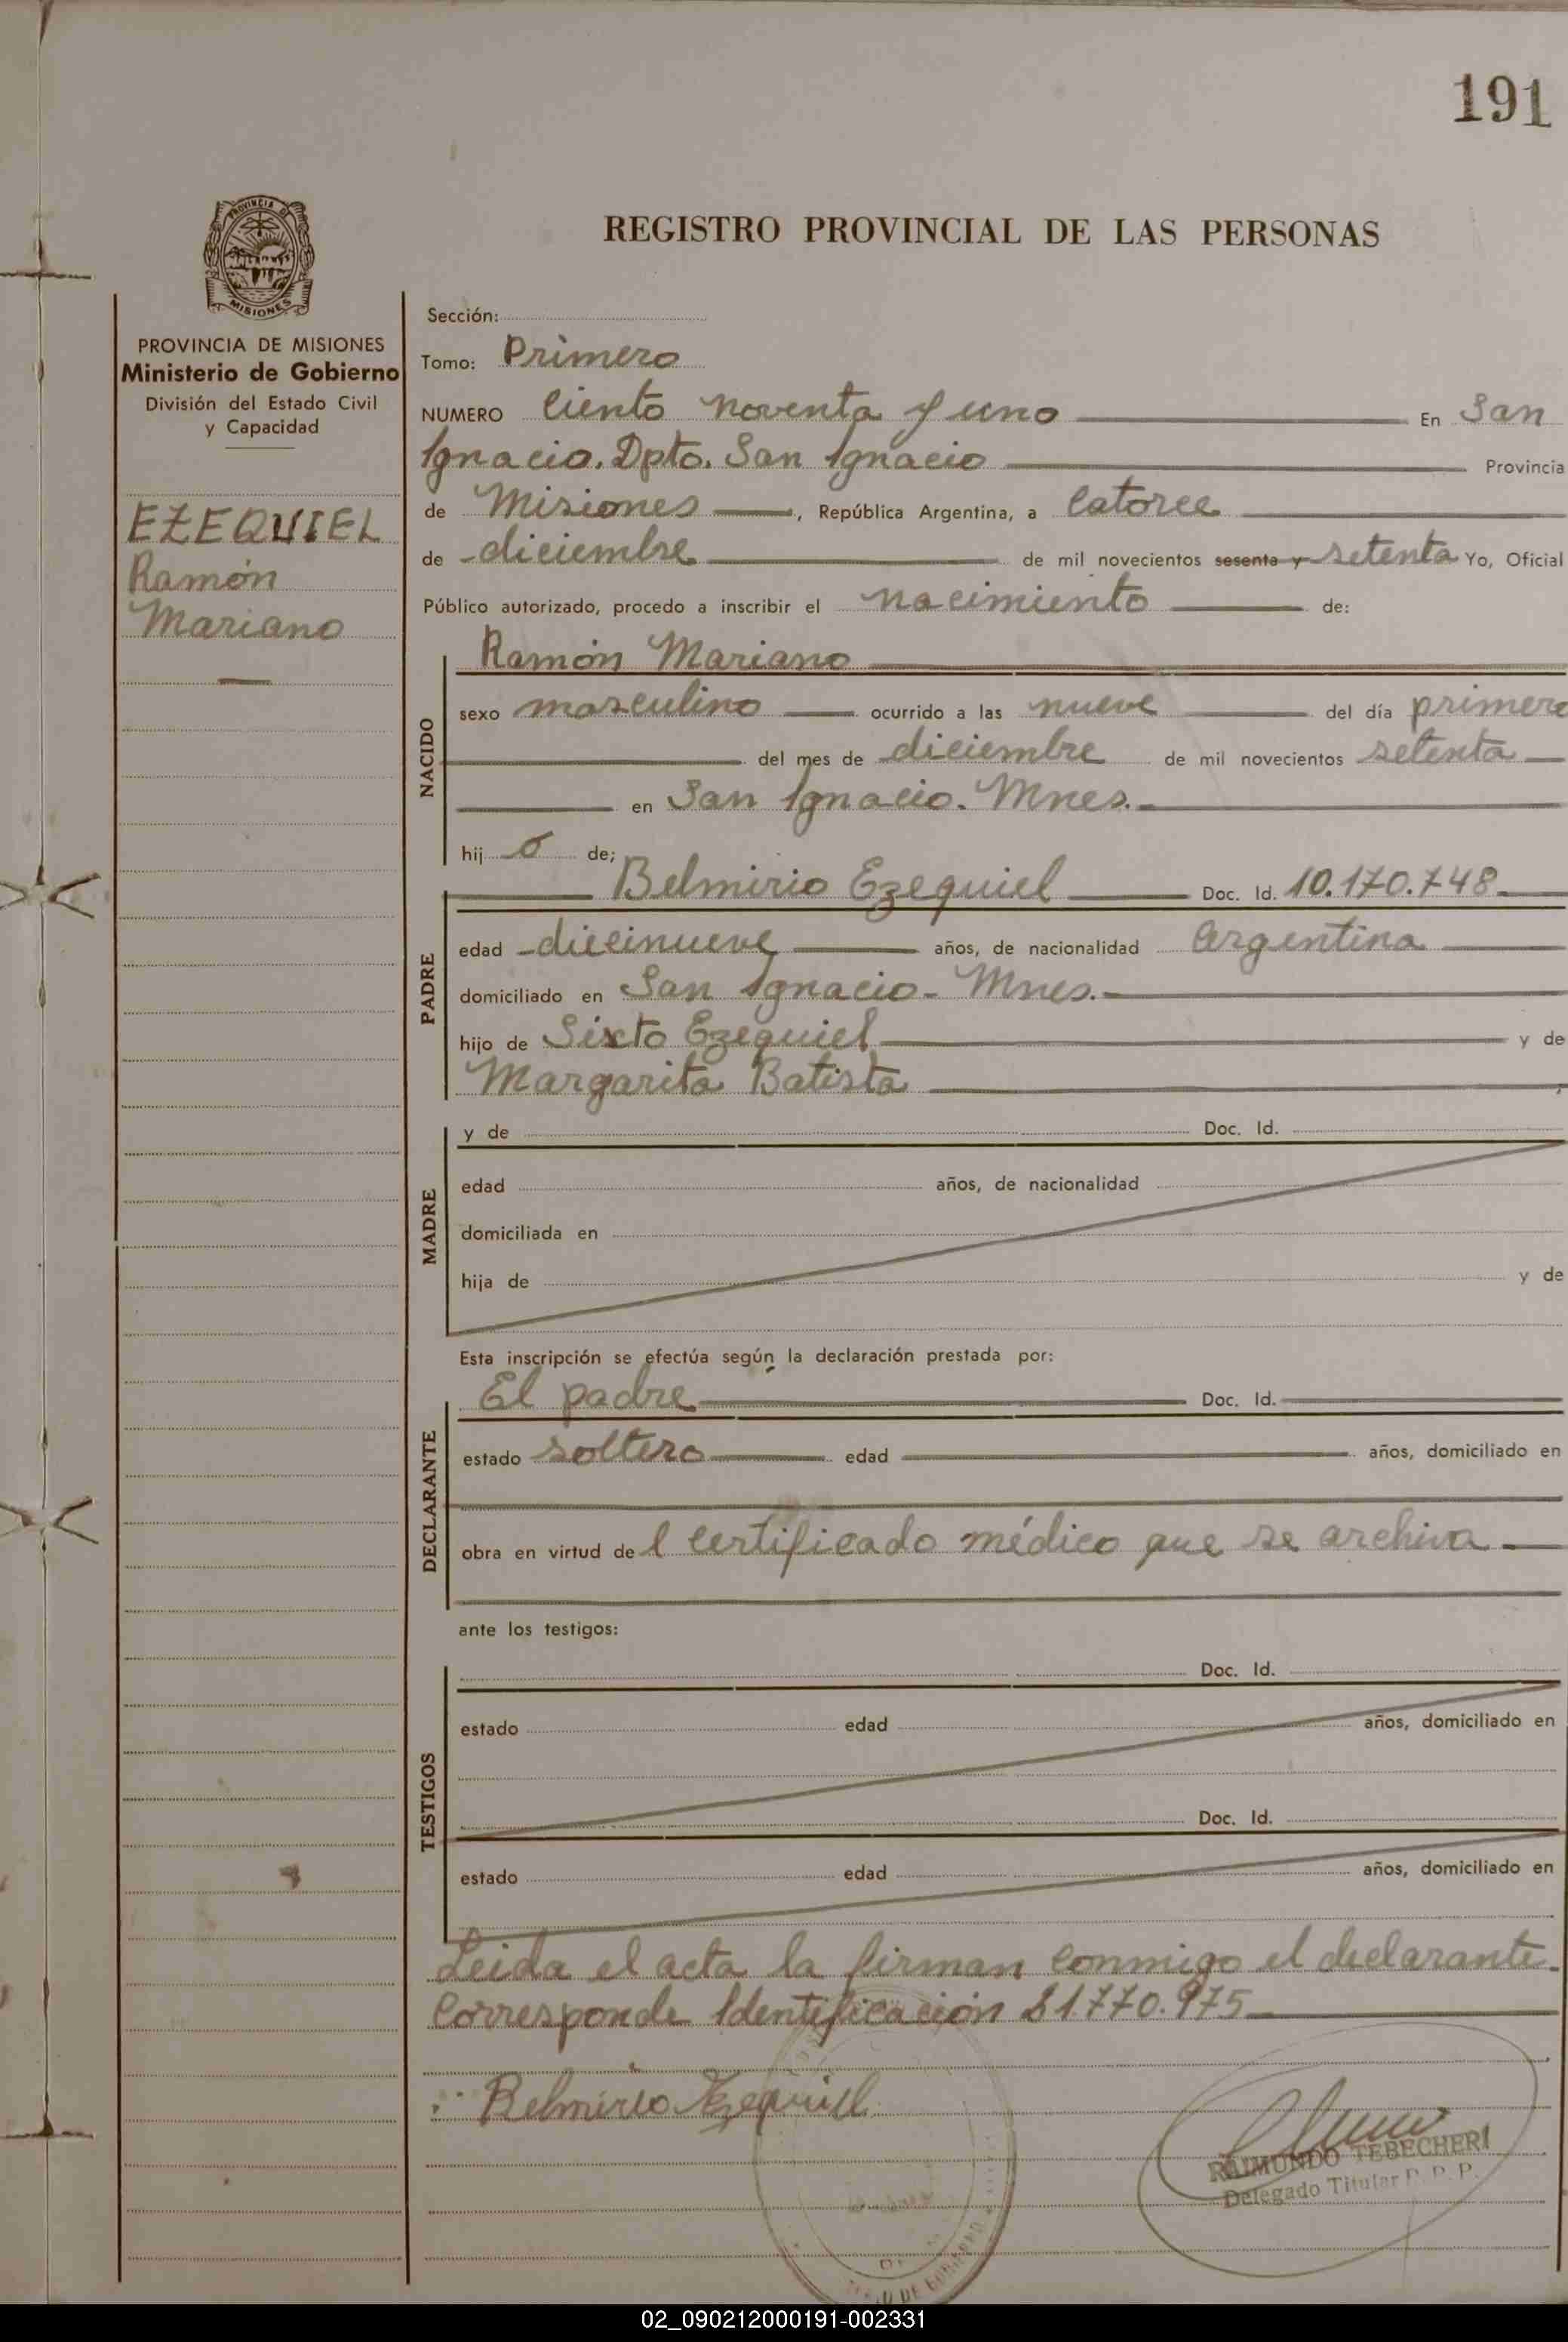 191
PROVINCIA DE
MISIONES
REGISTRO PROVINCIAL DE LAS PERSONAS
PROVINCIA DE MISIONES
Ministerio de Gobierno
División del Estado Civil
y Capacidad
EZEQUIEL
Ramón
Mariano
Sección:
Tomo: Primero
NUMERO Ciento noventa y uno En San
Ignacio. Dpto. San Ignacio Provincia
de Misiones, República Argentina, a Catorce
de diciembre de mil novecientos sesenta y setenta Yo, Oficial
Público autorizado, procedo a inscribir el nacimiento de:
NACIDO
Ramón Mariano
sexo masculino ocurrido a las nueve del día primero
del mes de diciembre de mil novecientos setenta
en San Ignacio. Mnes.
hij o de;
PADRE
Belmirio Ezequiel Doc. Id. 10.170.748
edad diecinueve años, de nacionalidad Argentina
domiciliado en San Ignacio - Mnes.
hijo de Sixto Ezequiel y de
Margarita Batista
MADRE
y de Doc. Id.
edad años, de nacionalidad
domiciliada en
hija de y de
Esta inscripción se efectúa según la declaración prestada por:
DECLARANTE
El padre Doc. Id.
estado soltero edad años, domiciliado en
obra en virtud de l certificado médico que se archiva
ante los testigos:
TESTIGOS
Doc. Id.
estado edad años, domiciliado en
Doc. Id.
estado edad años, domiciliado en
Leida el acta la firman conmigo el declarante.
Corresponde Identificación 21.770.975
Belmirio Ezequiel
RAIMUNDO TEBECHERI
Delegado Titular
02_090212000191-002331